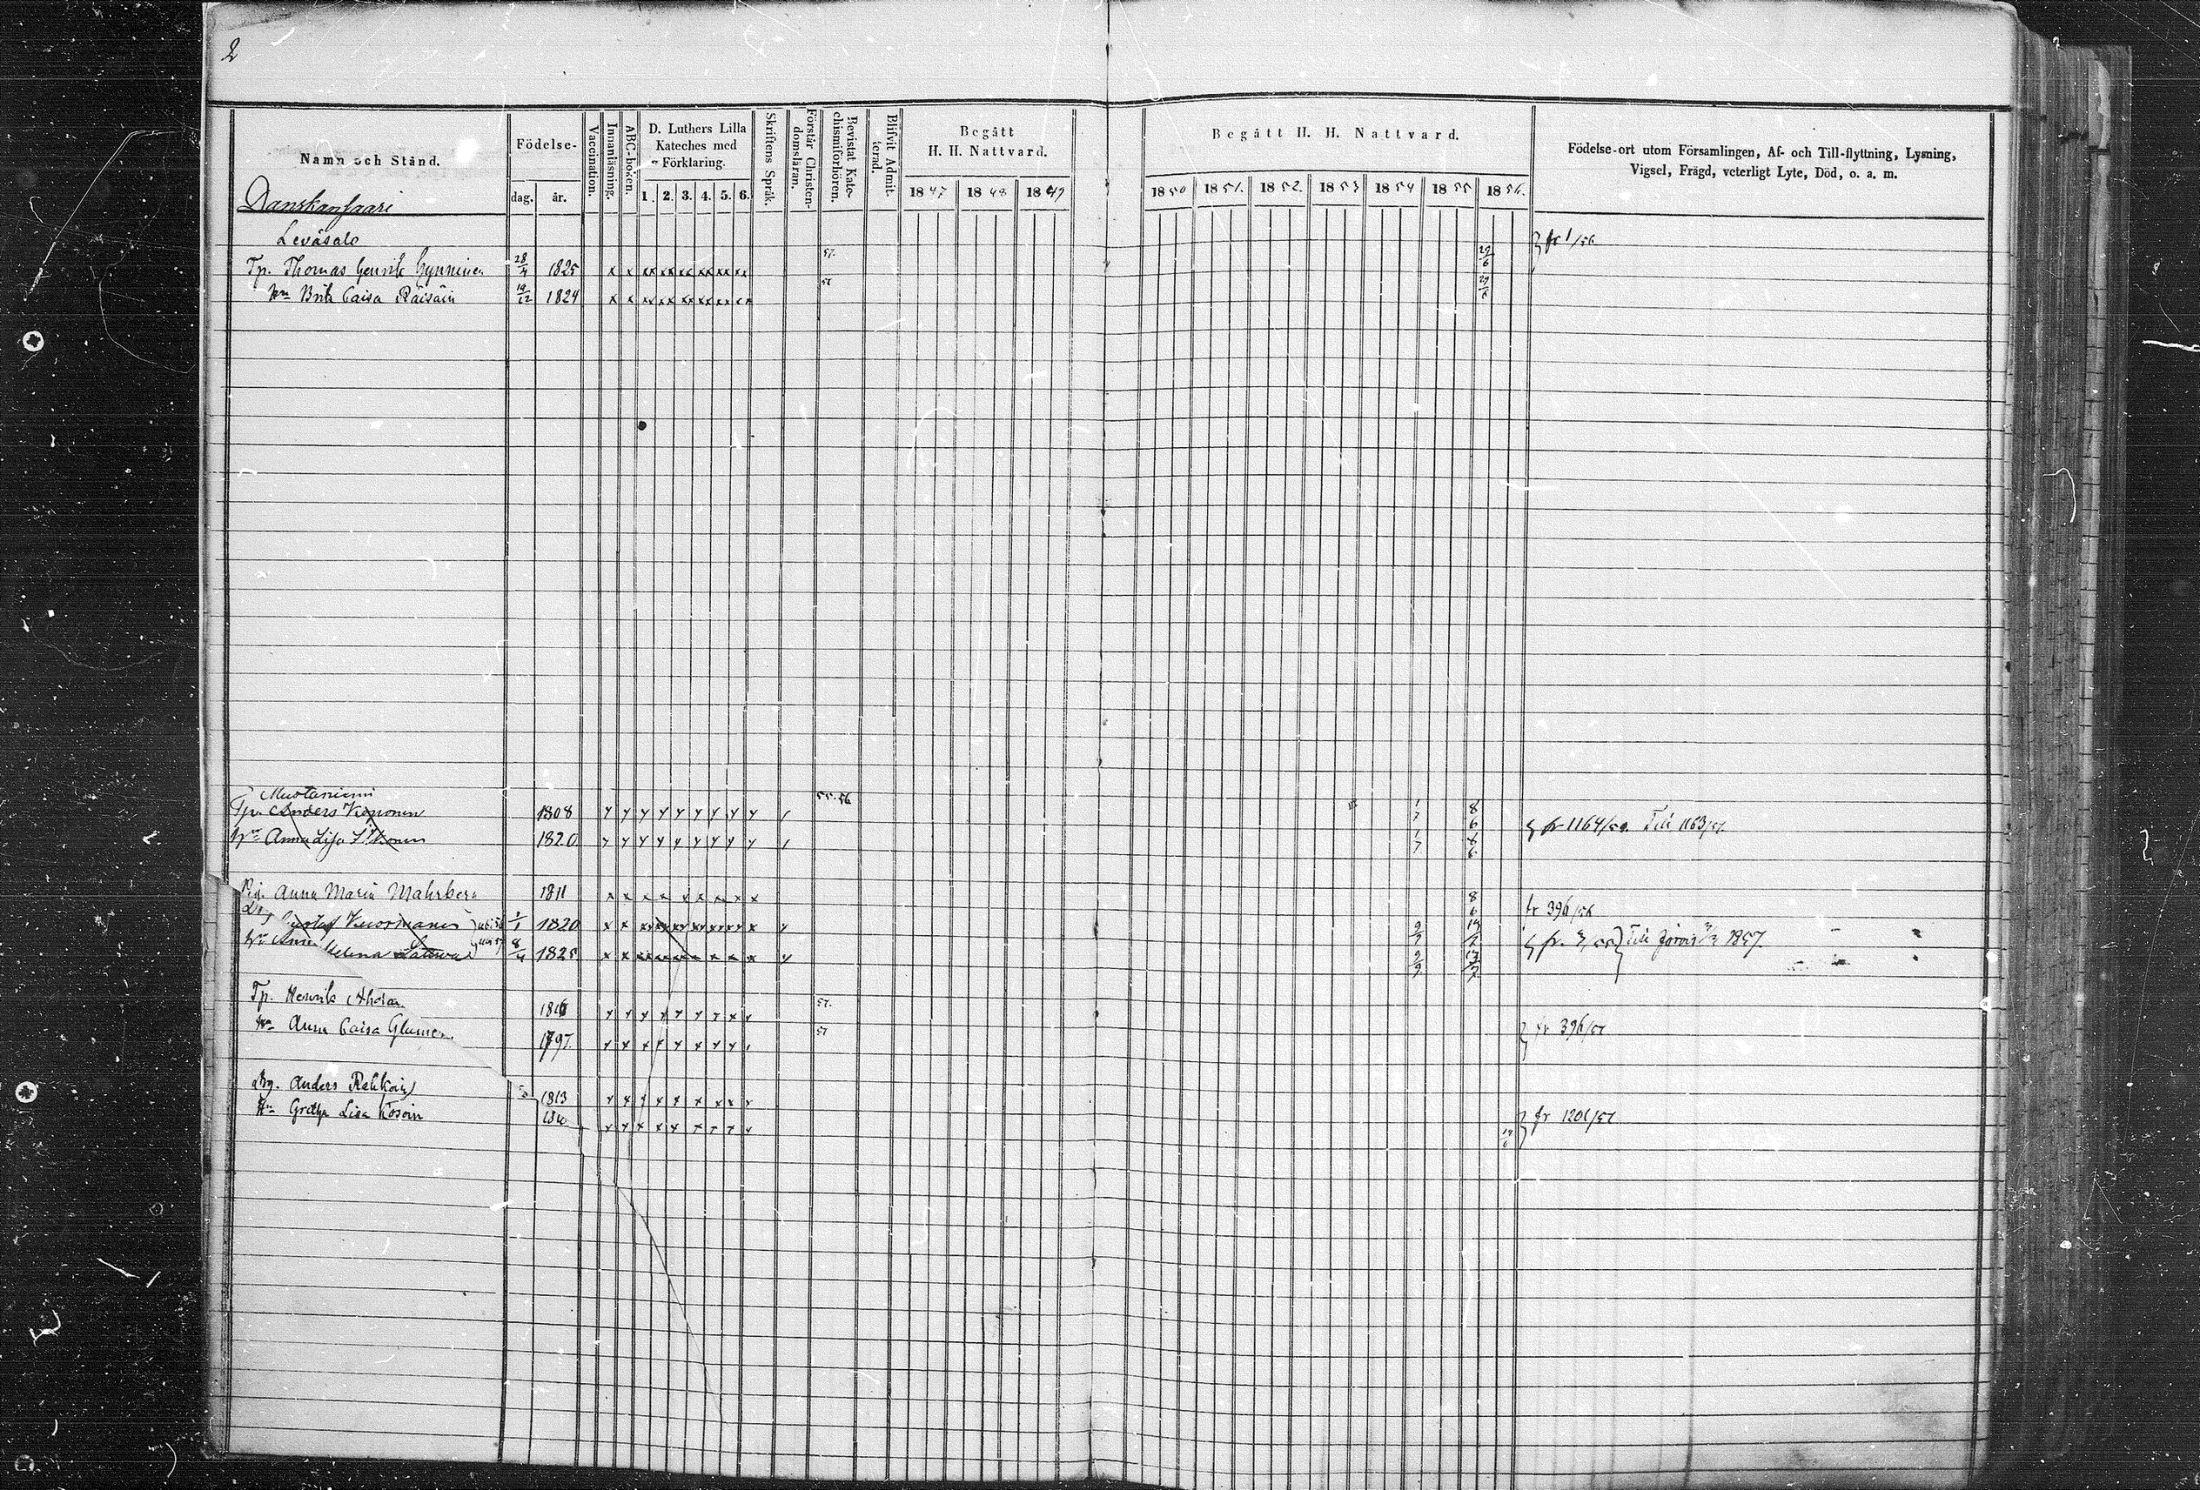 2
Namn och Stånd.
Födelse-
dag. år.
Vaccination.
Innanläsning.
ABC-boken.
D. Luthers Lilla
Kateches med
Förklaring.
1. 2. 3. 4. 5. 6.
Skriftens Språk.
Förstår Christen-
domsläran.
Bevistat Kate-
chismiförhören.
Blifvit Admit-
terad.
Begått
H. H. Nattvard.
1847 1848 1849
Begått H. H. Nattvard.
1850 1851. 1852. 1853 1854 1855 1856.
Födelse-ort utom Församlingen, Af- och Till-flyttning, Lysning,
Vigsel, Frägd, veterligt Lyte, Död, o. a. m.
Danskansaari
Leväsalo
Tp. Thomas Henrik Hynninen 28/4 1825 57. 29/6 fr 1/56
Hu Brita Caisa Räisäin 19/12 1824 57 29/6
Mustaniemi
Tp. Anders 1808 55.56 1/7 8/6
Hu Anna Lisa 1820 1/7 8/6 fr 1164/50. Till 1163/57.
Anna Maria Mahrberg 1811 8/6 fr 396/56
Gustaf Kuosmanen 1/1 1820
Hu Anna Helena 8/4 1825 fr. Till 1857.
Tp. Henrik Ahola 1816 57.
Hu Anna Caisa Glumen 1797. 57 fr 396/57
Anders Rahkoin 1813
Hu Gretha Lisa Kosoin fr 1201/57